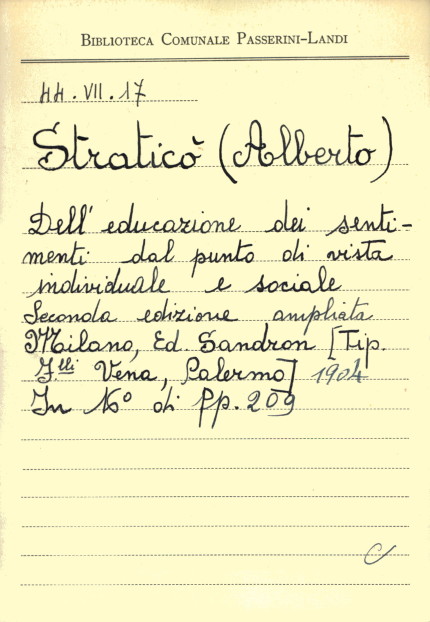 BIBLIOTECA COMUNALE PASSERINI-LANDI
44.VII.17
Straticò (Alberto)
Dell' educazione dei senti-
menti dal punto di vista
individuale e sociale
Seconda edizione ampliata
Milano, Ed. Sandron [Tip.
F.lli Vena, Palermo] 1904
In 16° di pp. 209
C